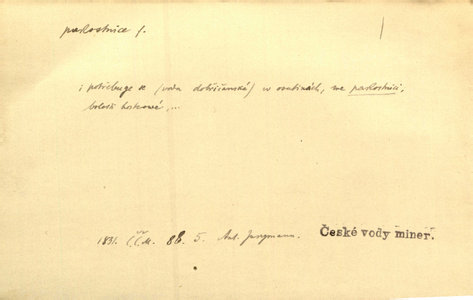 pakostnice f.
i potřebuge se (voda dobřičanská) w osutinách, we pakostnici,
bolesti kostcowé, ...
1831. Č.Č.M. 86. 5. Ant. Jungmann.
České vody miner.